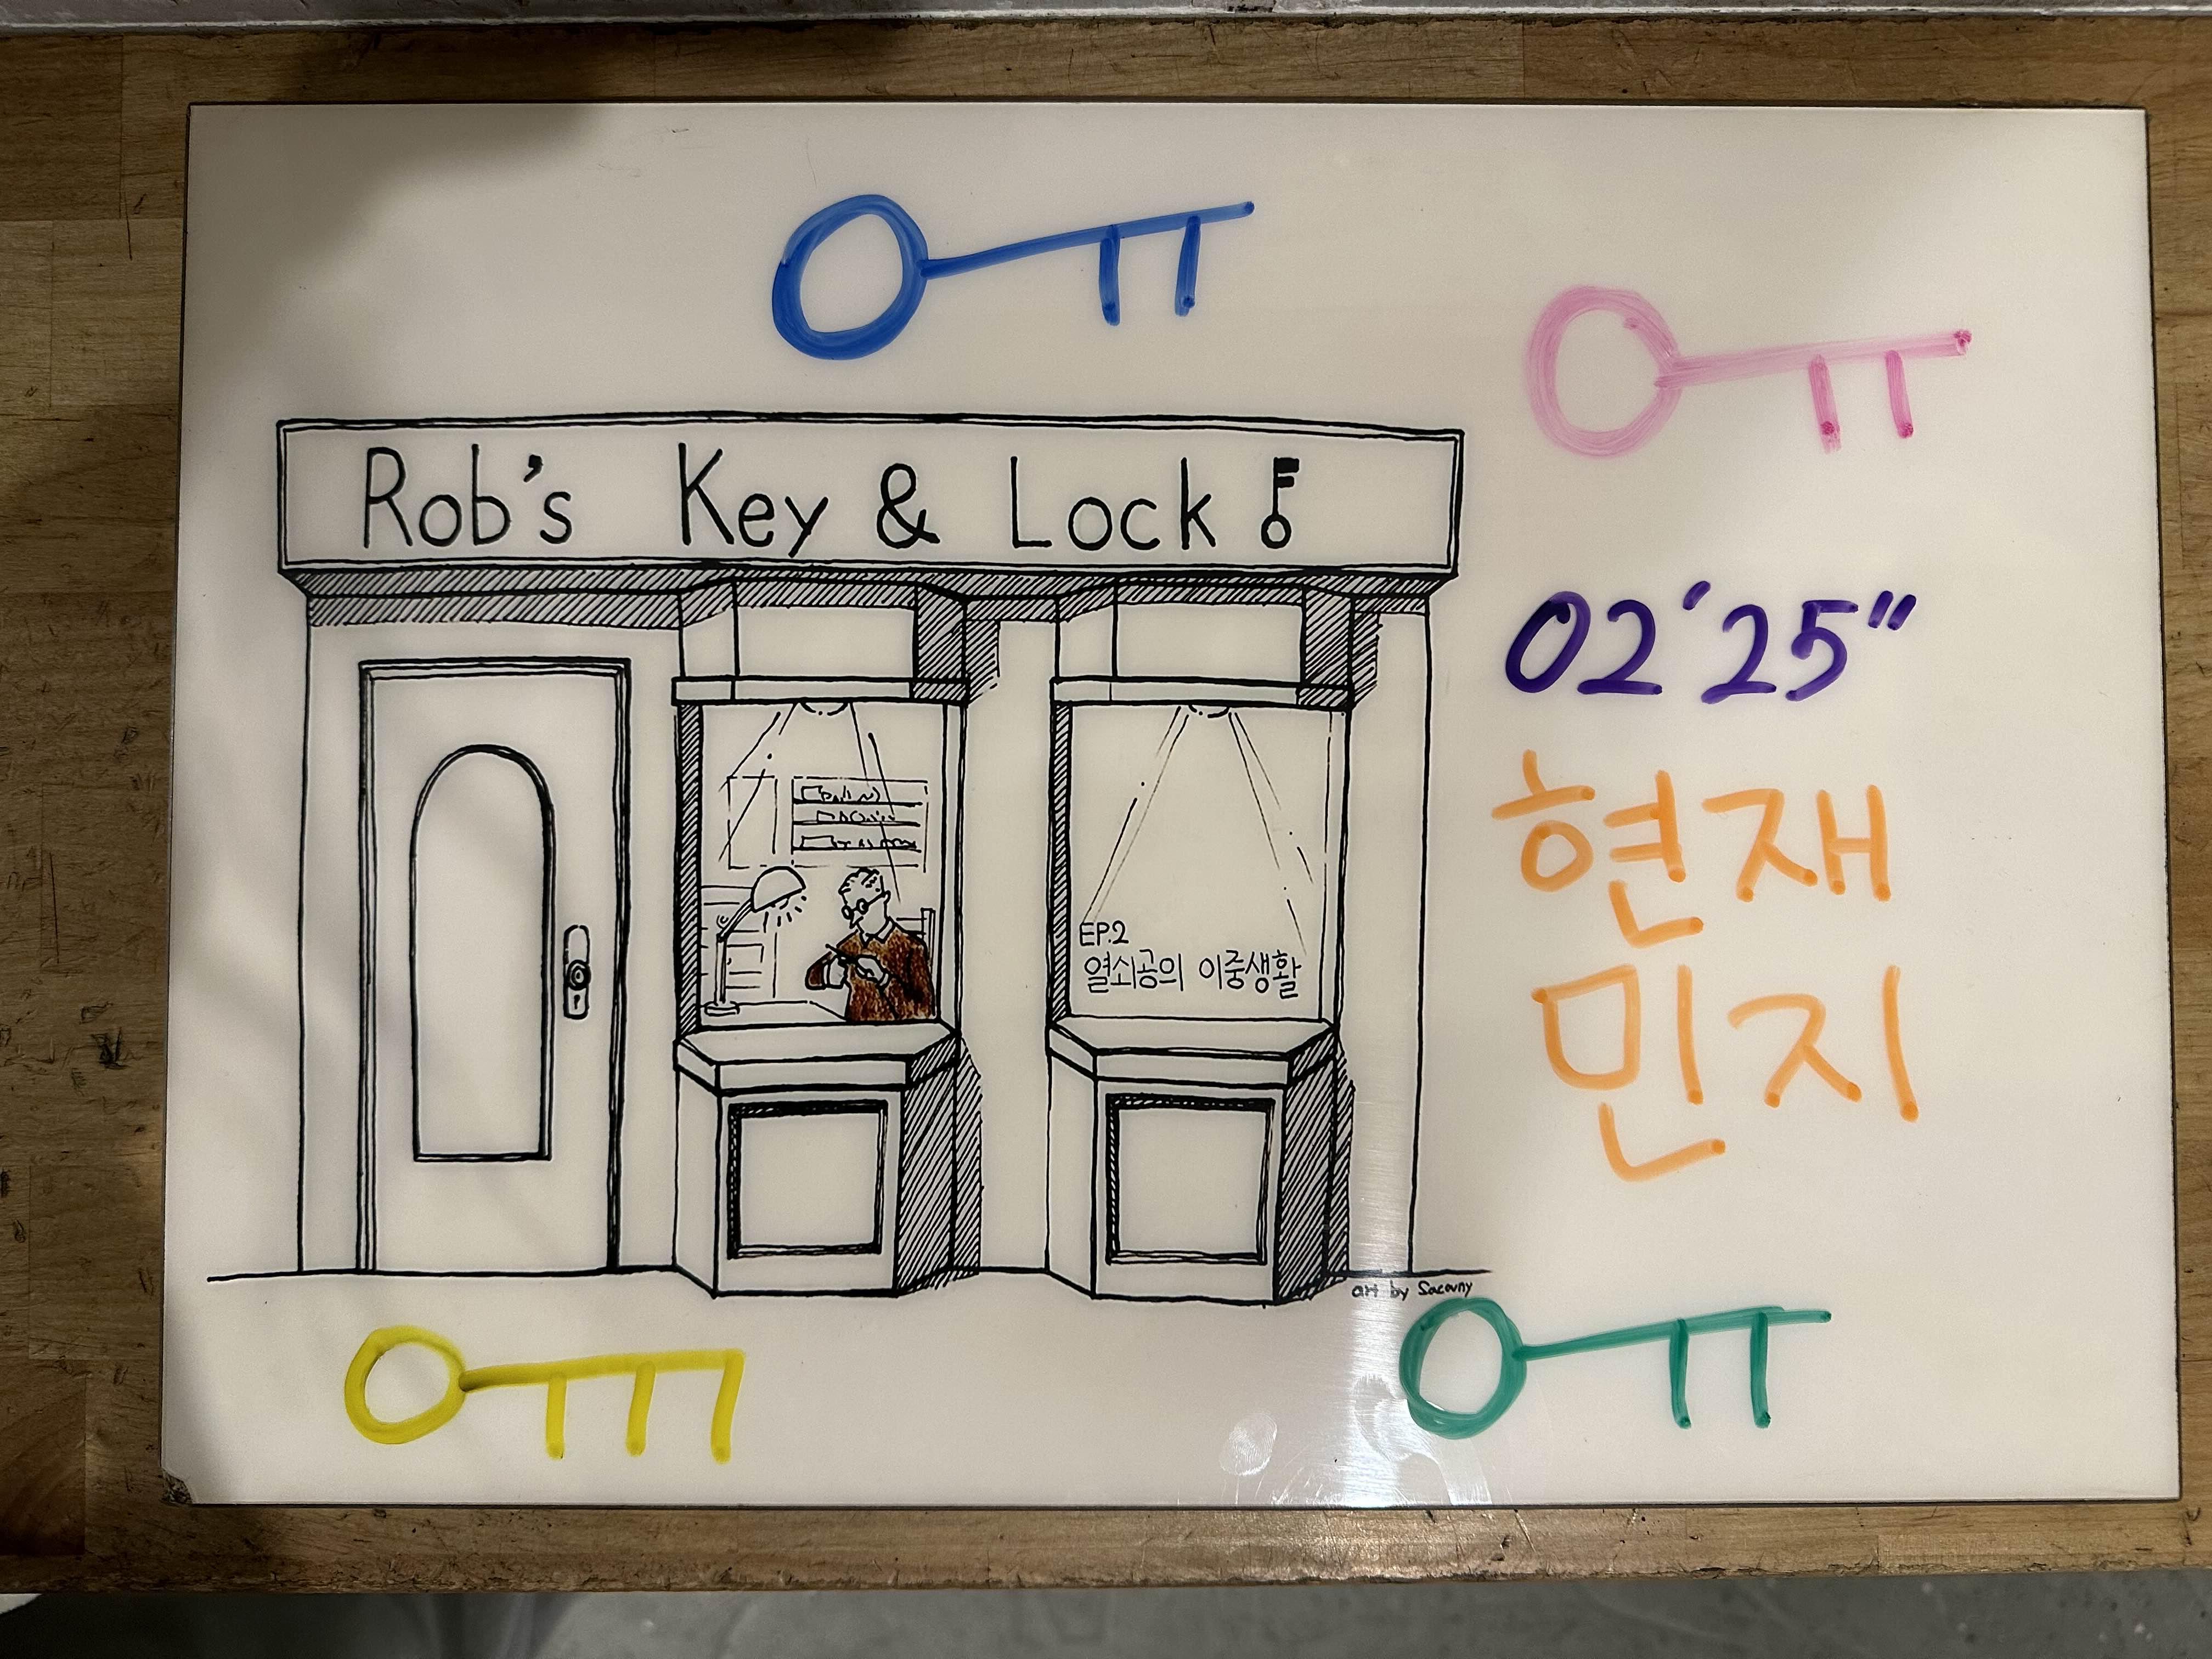 Rob's Key & Lock
02'25"
현재
민지
EP.2
열쇠공의 이중생활
art by Sacovny